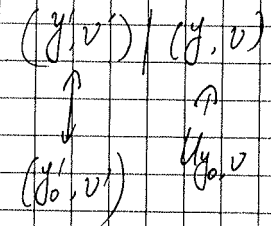 (y', v') | (y, v)
↕ ↑
(y'₀, v') U_{y₀, v}